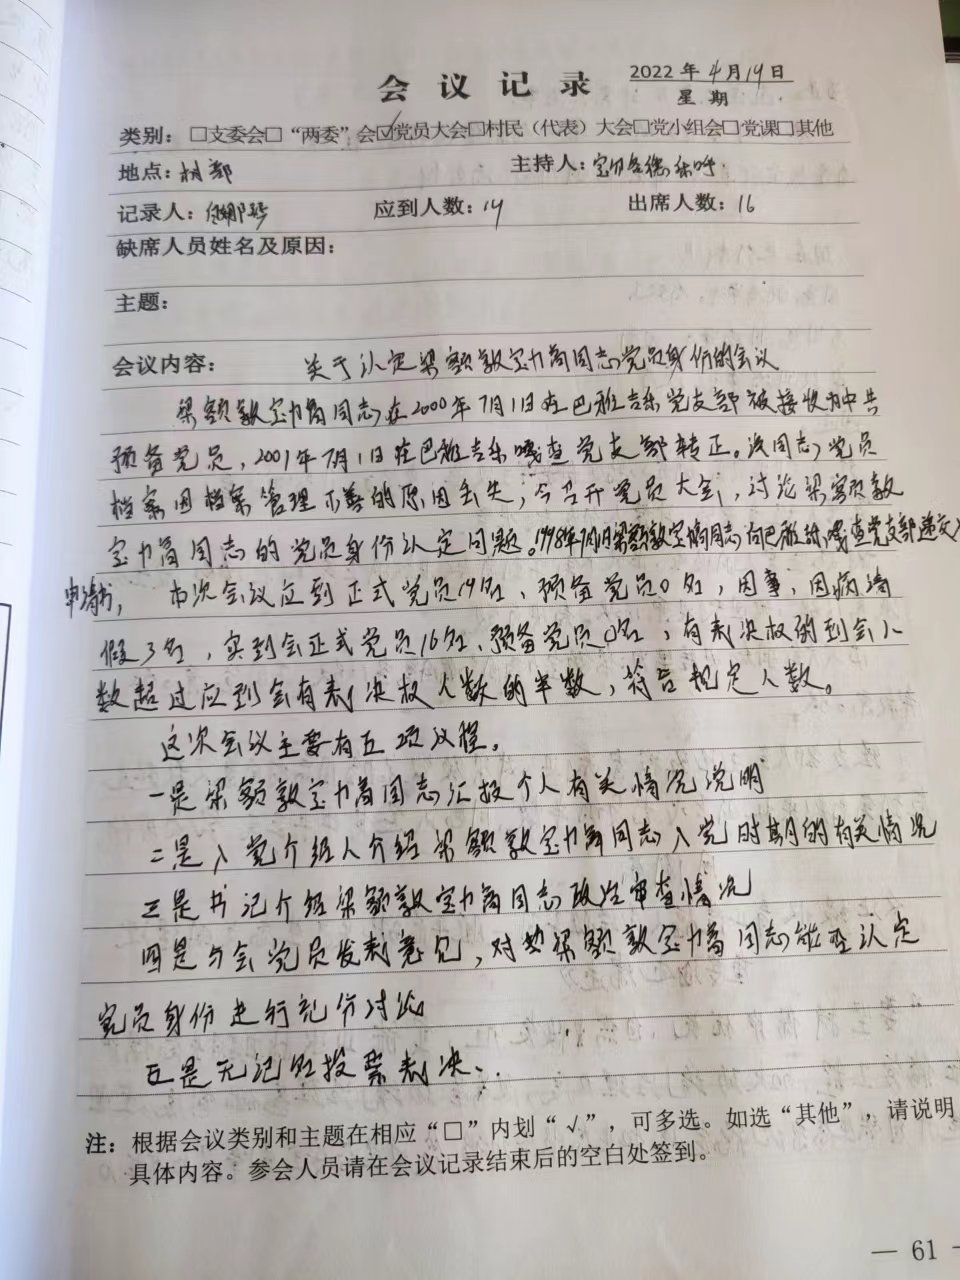 会议记录 2022年4月19日
星期
类别：□支委会□“两委”会☑党员大会□村民（代表）大会□党小组会□党课□其他
地点：村部 主持人：
记录人： 应到人数：19 出席人数：16
缺席人员姓名及原因：
主题：
会议内容： 关于认定梁额敦宝力高同志党员身份的会议
梁额敦宝力高同志在2000年7月1日在巴雅吉乐党支部被接收为中共
预备党员，2001年7月1日在巴雅吉乐嘎查党支部转正。该同志党员
档案因档案管理不善的原因丢失，今召开党员大会，讨论梁额敦
宝力高同志的党员身份认定问题。1998年7月1日梁额敦宝力高同志向巴雅吉乐嘎查党支部递交入
申请书， 本次会议应到正式党员19名、预备党员0名，因事、因病请
假3名，实到会正式党员16名、预备党员0名；有表决权的到会人
数超过应到会有表决权人数的半数，符合规定人数。
这次会议主要有五项议程。
一是梁额敦宝力高同志汇报个人有关情况说明
二是入党介绍人介绍梁额敦宝力高同志入党时期的有关情况
三是书记介绍梁额敦宝力高同志政治审查情况
四是与会党员发表意见，对梁额敦宝力高同志能否认定
党员身份进行充分讨论
五是无记名投票表决、.
注：根据会议类别和主题在相应“□”内划“√”，可多选。如选“其他”，请说明
具体内容。参会人员请在会议记录结束后的空白处签到。
— 61 —